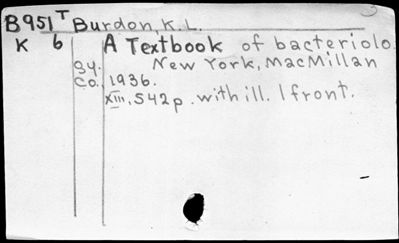 B951 T Burdon, K. L.
K 6 A Textbook of bacteriolo
gy. New York, MacMillan
Co. 1936.
XIII, 542 p. with ill. 1 front.